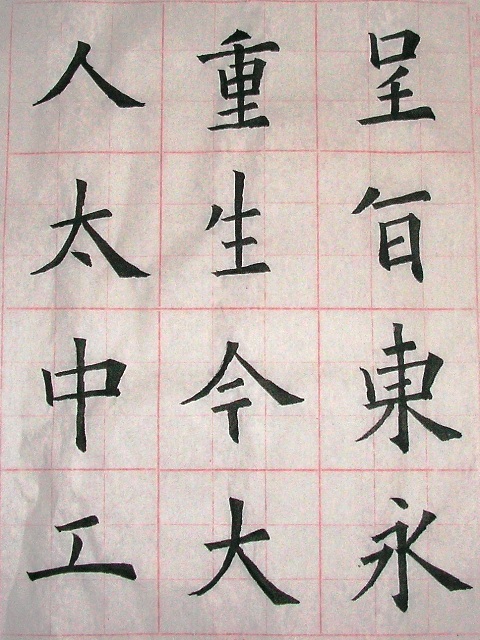 呈東永
重生今大
人太中工